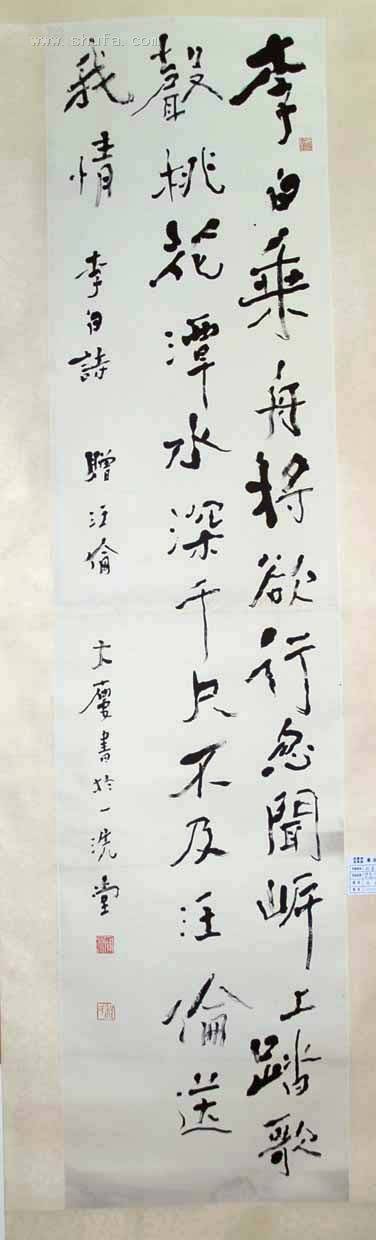 李白乘舟將欲行忽聞岸上踏歌
聲桃花潭水深千尺不及汪倫送
我情 李白詩 贈汪倫 大慶書於一洗堂
www.shufa.com